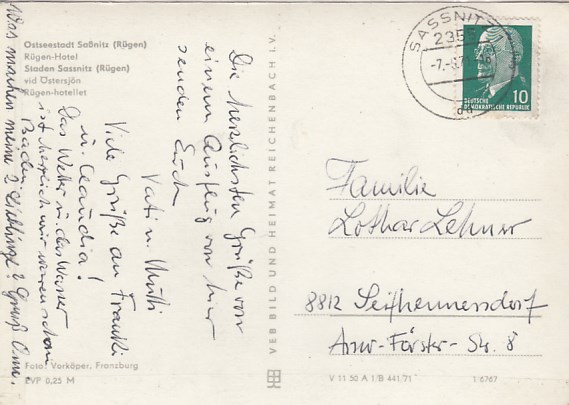 Ostseestadt Saßnitz (Rügen)
Rügen-Hotel
Staden Sassnitz (Rügen)
vid Östersjön
Rügen-hotellet
Die herzlichsten Grüße von
einem Ausflug von hier
senden Euch
Vati u. Mutti
Viele Grüße an Frankli
u. Claudia!
Das Wetter u. das Wasser
ist herrlich wir waren schon
Baden.
Was machen meine 2 Lieblinge? Gruß Omi.
Foto: Vorköper, Franzburg
EVP 0,25 M
VEB BILD UND HEIMAT REICHENBACH I. V.
SASSNITZ
2355
10
DEUTSCHE
DEMOKRATISCHE REPUBLIK
Familie
Lothar Lehner
8812 Seifhennersdorf
Arno-Förster-Str. 8
V 11 50 A 1/B 441/71
1 6767